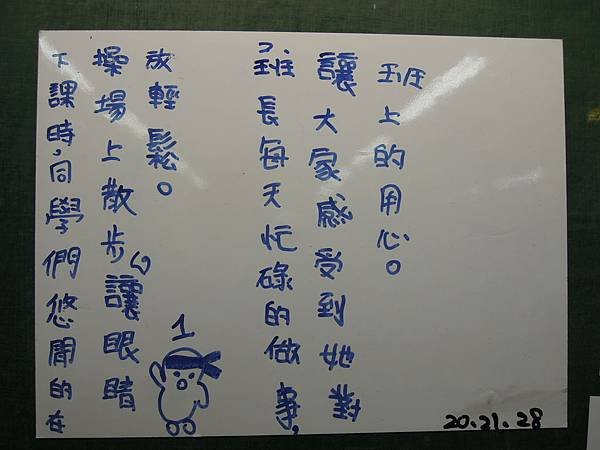 下課時,同學們悠閒的在
操場上散步,讓眼睛
放輕鬆。
1
班長每天忙碌的做事,
讓大家感受到她對
班上的用心。
20.21.28